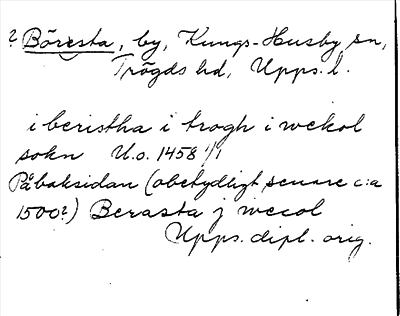 ? Böresta, by, Kungs-Husby sn,
Trögds hd, Upps. l.
i beristha i trogh i wekol
sokn U.o. 1458 1/1
På baksidan (obetydligt senare c:a
1500?) Berasta j wecol
Upps. dipl. orig.